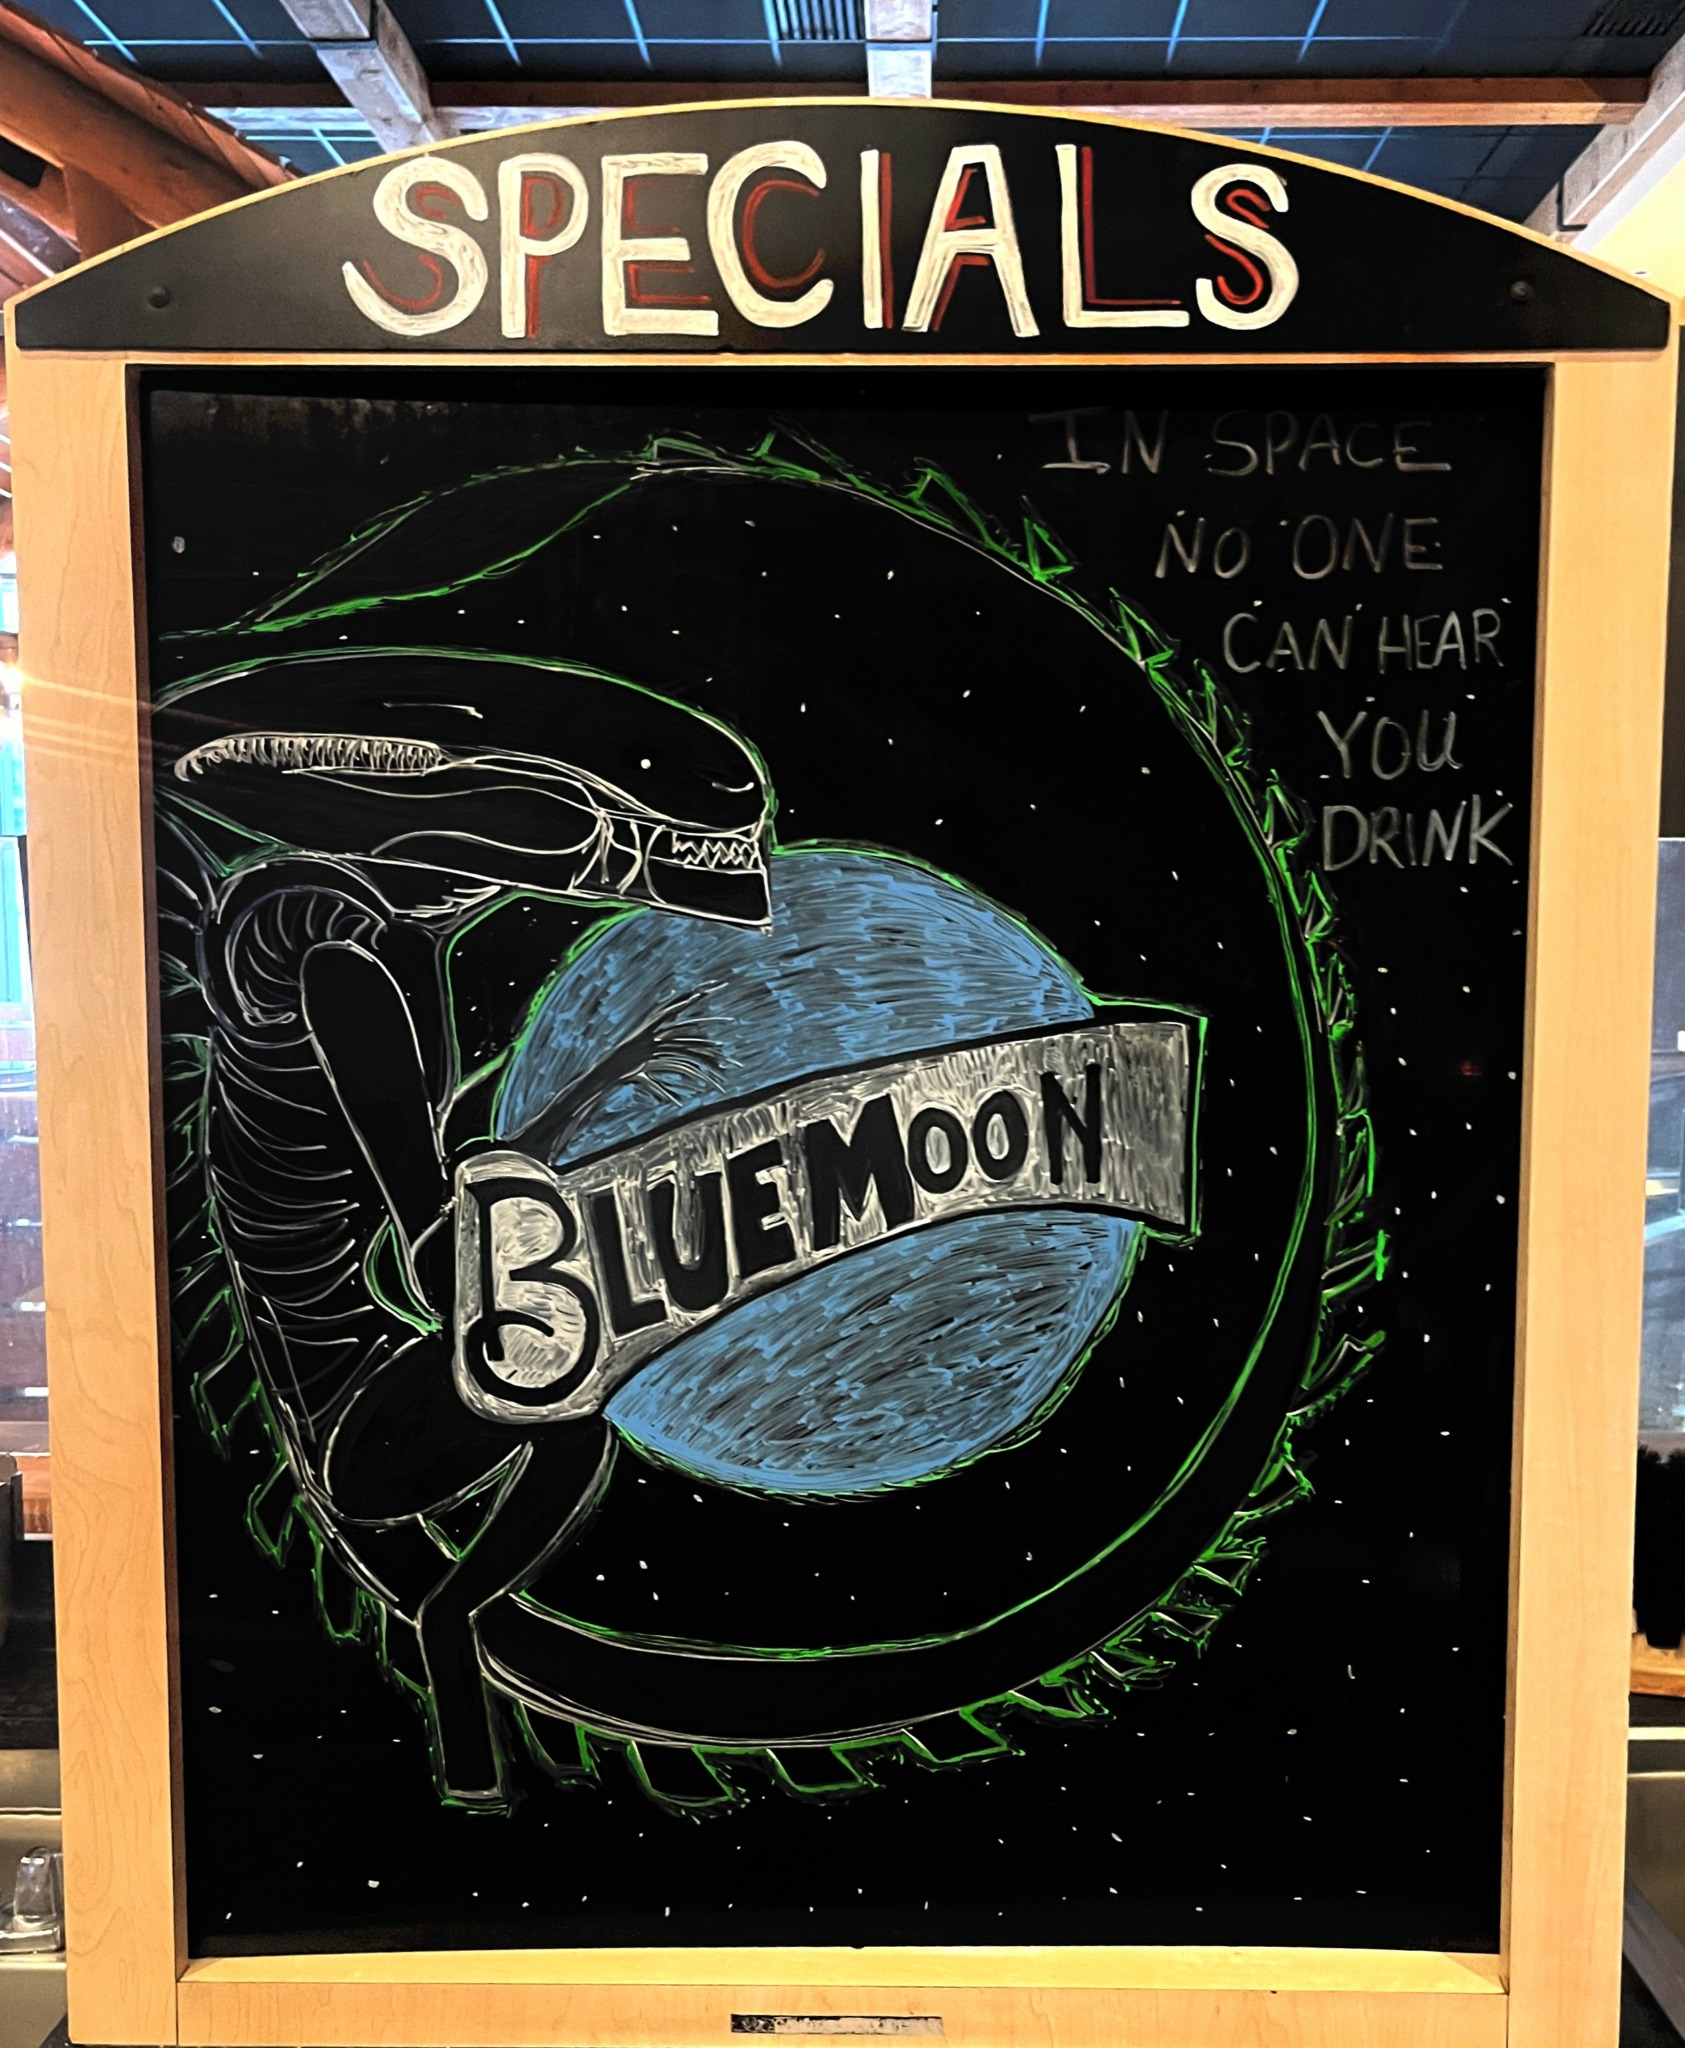 SPECIALS
IN SPACE
NO ONE
CAN HEAR
YOU
DRINK
BLUE MOON